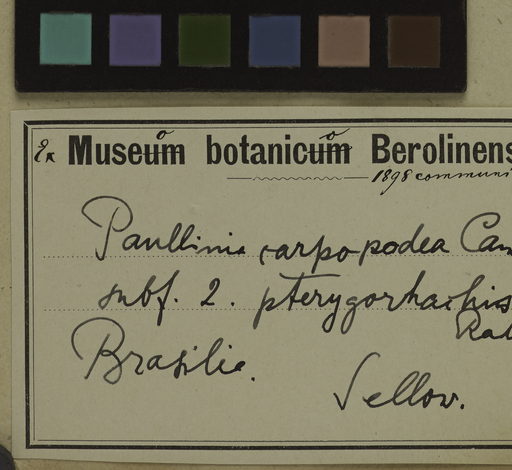 Ex Museum botanicum Berolinens
1898 communi
Paullinia carpopodea Cam
subf. 2. pterygorhachis
Rad
Brasilia.
Sellow.